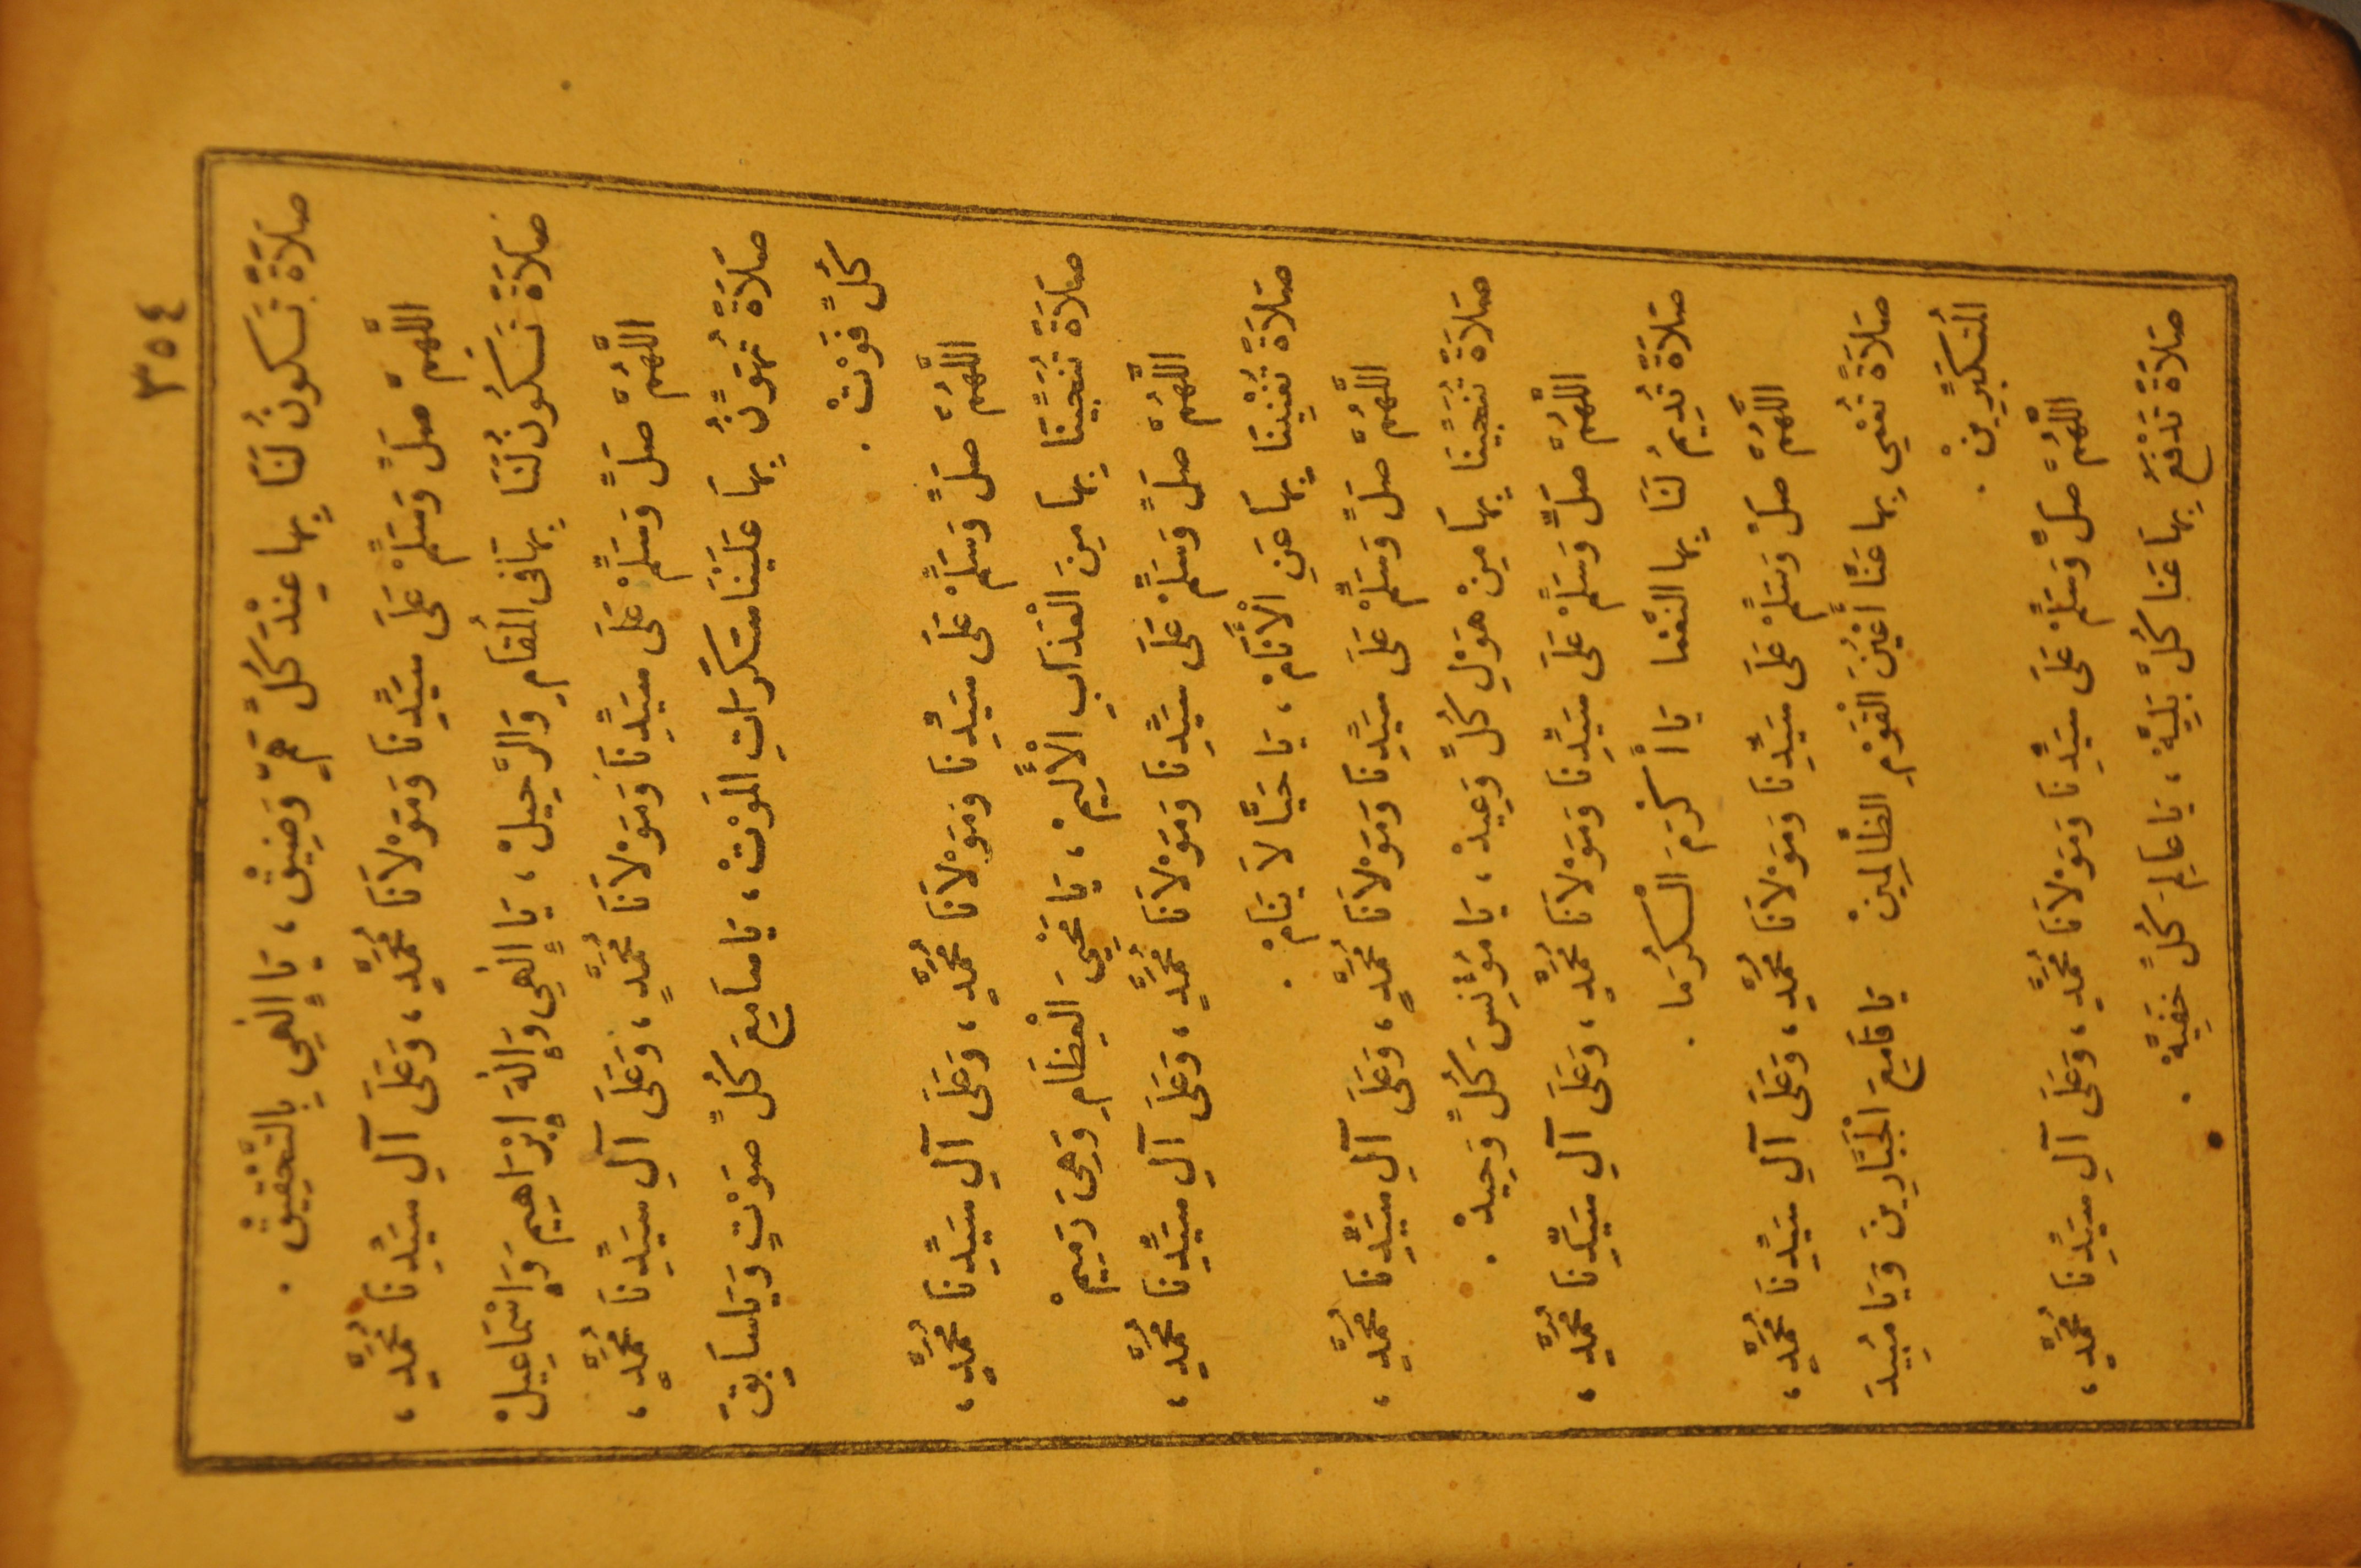 ٣٥٤
صَلَاةً تَكُونُ لَنَا بِهَا عِنْدَ كُلِّ هَمٍّ وَضِيقْ ، يَا إِلٰهِي بِالتَّحْقِيقْ .
اللَّهُمَّ صَلِّ وَسَلِّمْ عَلَى سَيِّدِنَا وَمَوْلَانَا مُحَمَّدٍ ، وَعَلَى آلِ سَيِّدِنَا مُحَمَّدٍ ،
صَلَاةً تَكُونُ لَنَا بِهَا فِى الْمُقَامِ وَالرَّحِيلْ ، يَا إِلٰهِي وَإِلٰهَ إِبْرَاهِيمَ وَإِسْمَاعِيلْ
اللَّهُمَّ صَلِّ وَسَلِّمْ عَلَى سَيِّدِنَا وَمَوْلَانَا مُحَمَّدٍ ، وَعَلَى آلِ سَيِّدِنَا مُحَمَّدٍ ،
صَلَاةً تُهَوِّنُ بِهَا عَلَيْنَا سَكَرَاتِ الْمَوْتْ ، يَا سَامِعَ كُلِّ صَوْتٍ وَيَا سَابِقَ
كُلِّ فَوْتْ .
اللَّهُمَّ صَلِّ وَسَلِّمْ عَلَى سَيِّدِنَا وَمَوْلَانَا مُحَمَّدٍ ، وَعَلَى آلِ سَيِّدِنَا مُحَمَّدٍ ،
صَلَاةً تُنَجِّينَا بِهَا مِنَ الْعَذَابِ الْأَلِيمْ ، يَا مُحْيِيَ الْعِظَامِ وَهِيَ رَمِيمْ
اللَّهُمَّ صَلِّ وَسَلِّمْ عَلَى سَيِّدِنَا وَمَوْلَانَا مُحَمَّدٍ ، وَعَلَى آلِ سَيِّدِنَا مُحَمَّدٍ ،
صَلَاةً تُغْنِينَا بِهَا عَنِ الْأَنَامْ ، يَا حَيًّا لَا يَنَامْ .
اللَّهُمَّ صَلِّ وَسَلِّمْ عَلَى سَيِّدِنَا وَمَوْلَانَا مُحَمَّدٍ ، وَعَلَى آلِ سَيِّدِنَا مُحَمَّدٍ ،
صَلَاةً تُنَجِّينَا بِهَا مِنْ هَوْلِ كُلِّ وَعِيدْ ، يَا مُؤْنِسَ كُلِّ وَحِيدْ .
اللَّهُمَّ صَلِّ وَسَلِّمْ عَلَى سَيِّدِنَا وَمَوْلَانَا مُحَمَّدٍ ، وَعَلَى آلِ سَيِّدِنَا مُحَمَّدٍ ،
صَلَاةً تُدِيمُ لَنَا بِهَا النَّعْمَا يَا أَكْرَمَ الْكُرَمَا .
اللَّهُمَّ صَلِّ وَسَلِّمْ عَلَى سَيِّدِنَا وَمَوْلَانَا مُحَمَّدٍ ، وَعَلَى آلِ سَيِّدِنَا مُحَمَّدٍ ،
صَلَاةً تُعْمِي بِهَا عَنَّا أَعْيُنَ الْقَوْمِ الظَّالِمِينْ يَا قَامِعَ الْجَبَّارِينَ وَيَا مُبِيدَ
الْمُتَكَبِّرِينْ .
اللَّهُمَّ صَلِّ وَسَلِّمْ عَلَى سَيِّدِنَا وَمَوْلَانَا مُحَمَّدٍ ، وَعَلَى آلِ سَيِّدِنَا مُحَمَّدٍ ،
صَلَاةً تَدْفَعُ بِهَا عَنَّا كُلَّ بَلِيَّةْ ، يَا عَالِمَ كُلِّ خَفِيَّةْ .